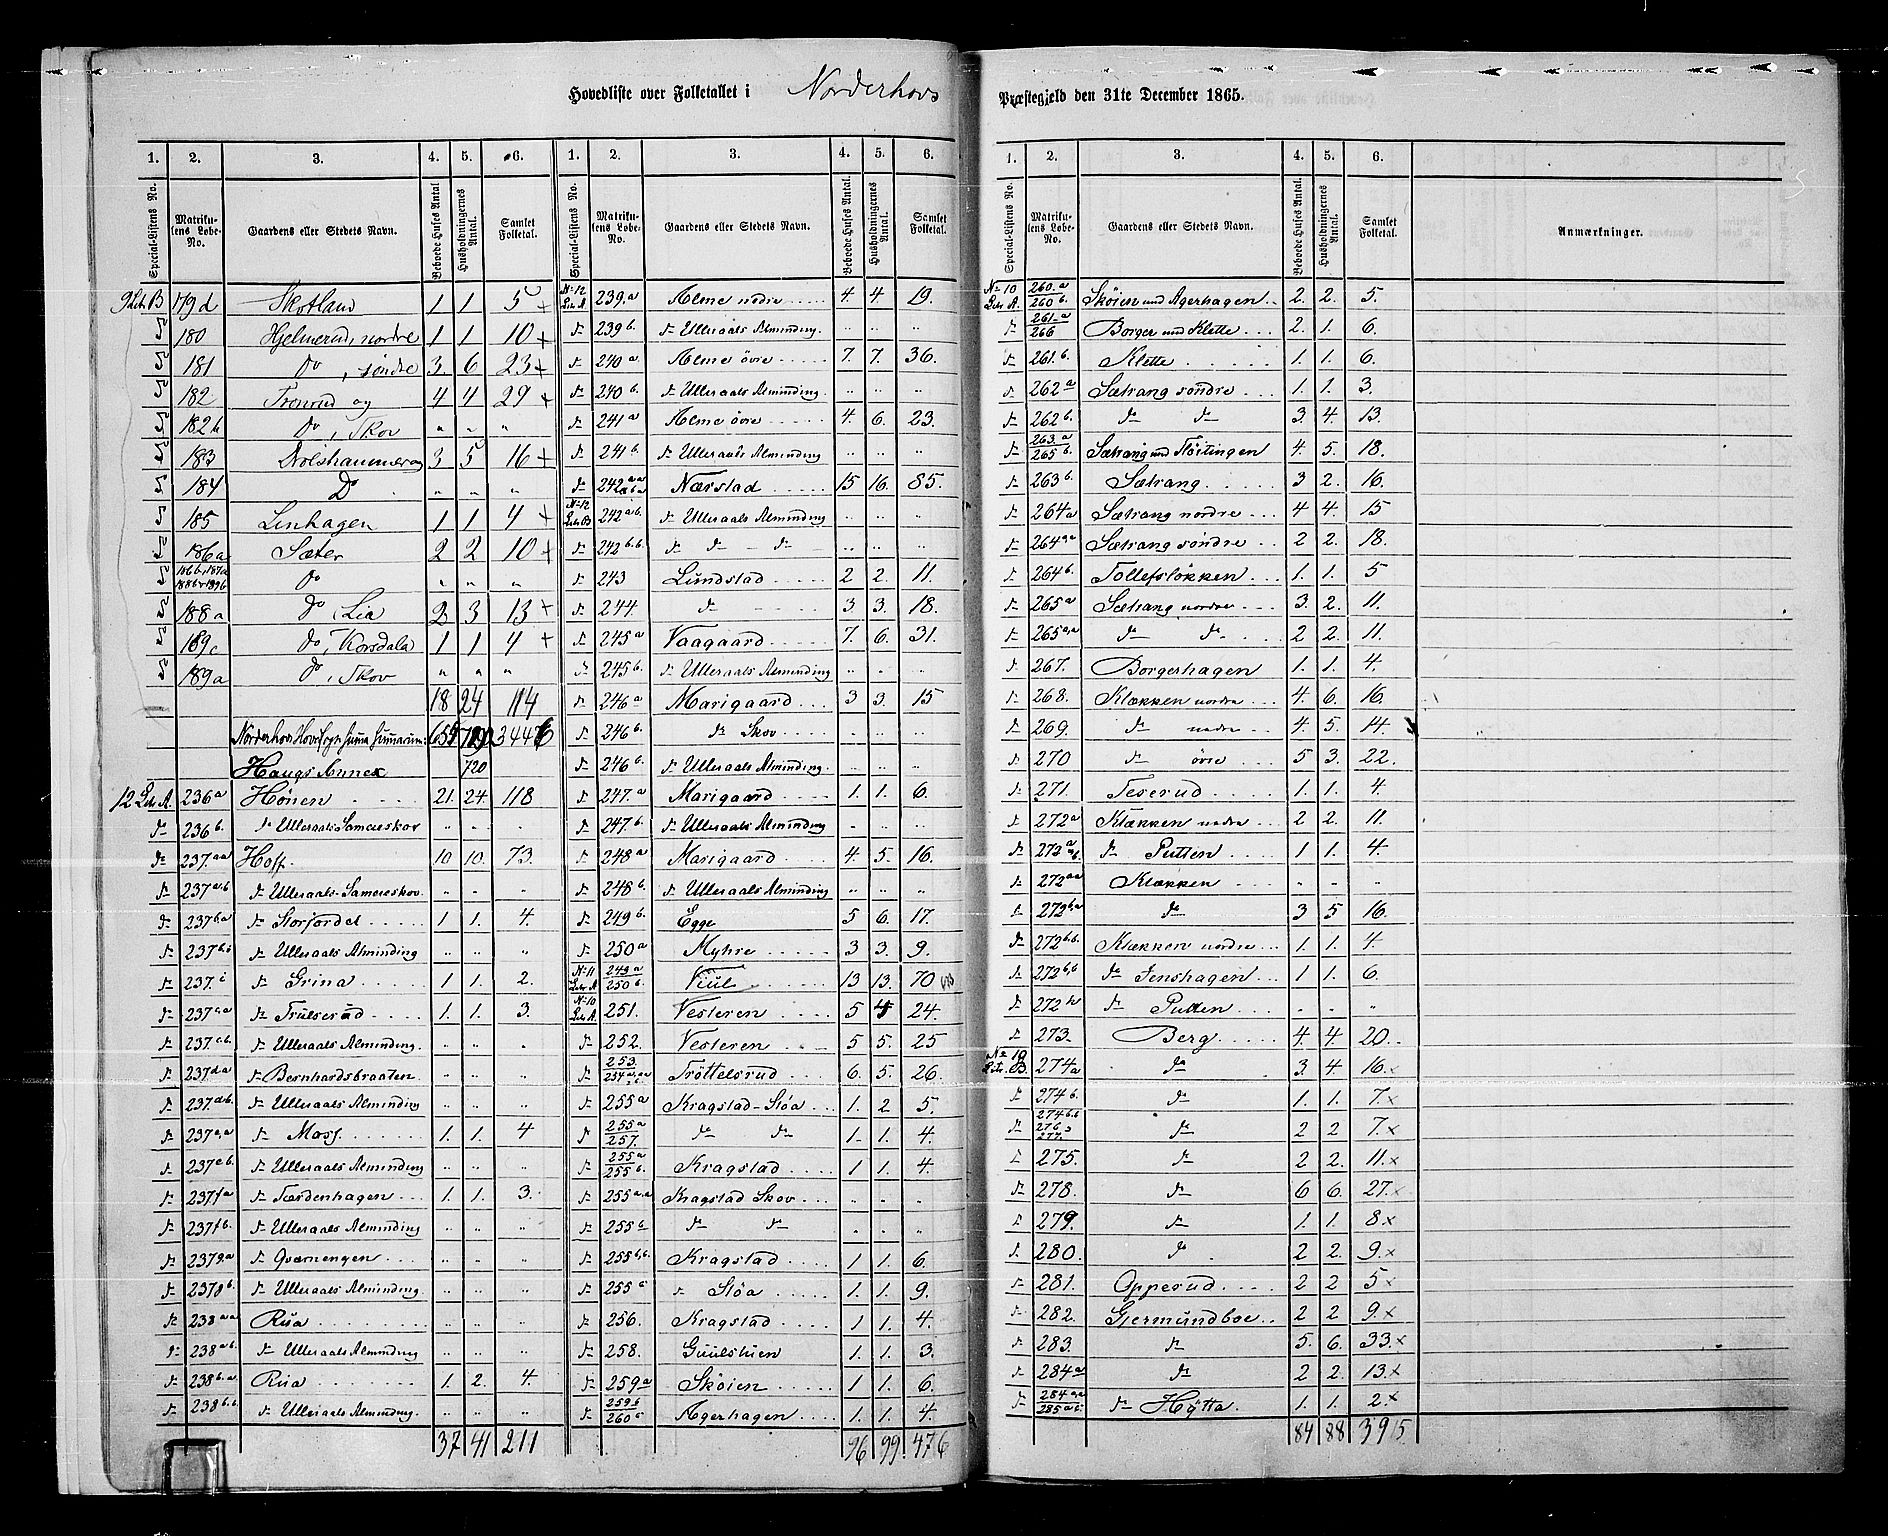 Hovedliste over Folketallet i Norderhovs Præstegjeld den 31te December 1865.
1. 2. 3. 4. 5. 6. 1. 2. 3. 4. 5. 6.
Special-Listens No. Matrikulens Løbe-No. Gaardens eller Stedets Navn. Beboede Huses Antal Husholdningernes Antal. Samlet Folketal. Special-Listens No. Matrikulens Løbe-No. Gaardens eller Stedets Navn. Beboede Huses Antal. Husholdningernes Antal. Samlet Folketal.
9 Litr B 179d Skotland 1 1 5
180 Hjelmerud, nordre 1 1 10 +
181 Do, søndre 3 6 23 +
182 Tronrud og 4 4 29 +
182b Do, Skov " " "
183 Dolshammer og 3 5 16 +
184 Do " " "
185 Linhagen 1 1 4 +
186a Sæter 2 2 10 +
Do " " "
188a Do Lia 2 3 13 +
189c Do, Korsdala 1 1 4 +
189a Do, Skov " " "
18 24 114
Norderhovs Hovedsogn Summa Summarum:
Haugs Annex 720
12 Litr A. 236a Hönen 21. 24. 118
do 236b. do Ulleraals Samereskov " " "
do 237.aa Hoff. 10 10. 73.
do 237a.b do Ulleraals-Samereskov. " " "
do 237b.a do Storjordet 1. 1. 4.
do 237b.b do Ulleraals Alminding " " "
do 237.c do Grina 1. 1. 2.
do 237c.a do Trulserud 1. 1. 3.
do 237.c.b. do Ulleraals Alminding. " " "
do 237da do Bernhardsbraaten. " " "
do 237.d.b. do Ulleraals Alminding " " "
do 237e.a do Moss. 1. 1. 4
do 237e.b. do Ulleraals Alminding " " "
do 237f.a do Færdenhagen 1. 1. 3.
do 237f.b. do Ulleraals Alminding " " "
do 237g.a do Qværnengen " " "
do 237g.b. do Ulleraals Alminding. " " "
do 238.aa Rua " " "
do 238.a.b. do Ulleraals Alminding " " "
do 238b.a. Rua 1. 2. 4.
do 238b.b. do Ulleraals Alminding. " " "
37 41 211
No 12 Litr A. 239.a Alme nedre 4 4 19.
do 239b. do Ulleraals Alminding. " " "
do 240a Alme övre 7. 7. 36.
do 240b. do Ulleraals Alminding. " " "
do 241a Alme övre 4. 6. 23.
do 241b. do Ulleraals Alminding " " "
do Nærstad 15 16. 85.
No 12 Litr B 242a.b. do Ulleraals Alminding " " "
do 242b.b. do do - do " " "
do 243 Lundstad 2 2. 11.
do 244. do 3 3. 18.
do 245a Vaagaard 7. 6. 31.
do 245b. do Ulleraals Alminding " " "
do 246a Marigaard 3 3. 15
do 246b. do Skov " " "
do 246b do Ulleraals Alminding. " " "
do 247.a Marigaard 1. 1. 6.
do 247.b do Ulleraals Alminding " " "
do 248a Marigaard 4. 5. 16.
do 248b. do Ulleraals Alminding " " "
do 249b. Egge 5 6. 17.
do 250a Myhre 3 3. 9.
No 11 Litr A 249.a 250b. Viul 13 13. 70
No 10 Litr A. 251. Vesteren 5 24.
do 252. Vesteren 5 5. 25
do 253. Tröttelsrud 6. 5. 26.
do 255a Kragstad-Stöa 1. 2 5.
do 255a 257. do do 1. 1. 4.
do 255a 255b. Kragstad 1 1. 4.
do 255a.a Kragstad Skov " " "
do 255b do do " " "
do 255b.b. Kragstad 1 1. 6.
do 255c do Stöa 1. 1. 9.
do 256. Kragstad 1 1. 4.
do 258. Guulskien 1 1. 3.
do 259a Sköien 1 1. 6.
do 259b 260c Agerhagen 1. 1. 4.
96 99 476
1. 2. 3. 4. 5. 6.
Special-Listens No. Matrikulens Løbe-No. Gaardens eller Stedets Navn. Beboede Huses Antal. Husholdningernes Antal. Samlet Folketal. Anmærkninger.
No 10 Litr A. 260.a 260b. Sköien und Agerhagen 2. 2. 5.
do 261.a 266 Borger und Klette 2. 1. 6.
do 261.b. Klette 1. 1. 6.
do 262a Sætrang söndre 1. 1. 3.
do 262b. do do 3. 4. 13.
do 263.a 265b. Sætrang und Flöitingen 4. 5. 18.
do 263b. Sætrang 3 2. 16.
do 264a Sætrang nordre 4 4. 15
do 264aa Sætrang söndre 2 2. 18.
do 264b. Tollefslökken 1. 1. 5
do 265a Sætrang nordre 3. 2. 11.
do 265a.a do do 2 2. 11.
do 267. Borgerhagen 1. 1. 4.
do 268. Klækken nordre 4. 6. 16.
do 269. do nedre 4. 5. 14.
do 270 do övre 5 3. 22.
do 271. Teserud 1. 1. 4
do 272a Klækken nedre 2 2. 11.
do do Putten 1 1. 4.
do 272aa Klækken " " "
do 272b.a do 3 5 16.
do 272b.b. Klækken nordre 1. 1. 4.
do 272b.b do Jenshagen 1 1. 6.
do do Putten " " "
do 273. Berg 4. 4 20.
No 10 Litr. B. 274a do 3 4 16.x
do 274b. do 1. 1. 7.x
do do 2 2 7.x
do 275. do 2 2. 11.x
do 278. do 6 6. 27.x
do 279. do 1. 1. 8x
do 280. do 2 2. 9.x
do 281. Opperud 2 2 5x
do 282. Gjermundboe 2 2 9.x
do 283. do 5. 6. 33.x
do 284a do 2 2 13.x
do do Hytta 1. 1. 2.x
84 88 3915